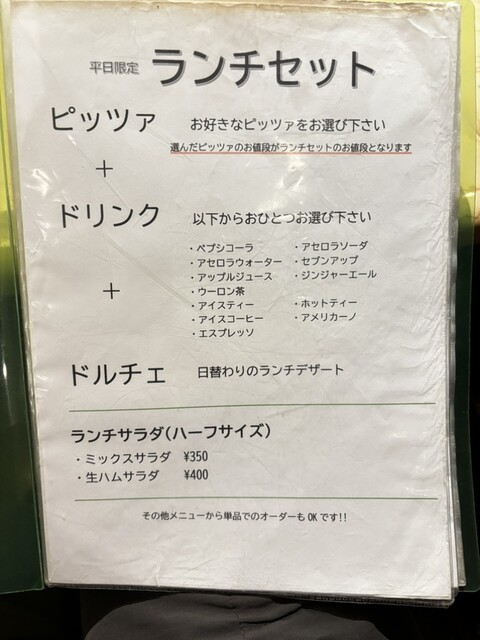 平日限定 ランチセット
ピッツァ お好きなピッツァをお選び下さい
選んだピッツァのお値段がランチセットのお値段となります
+
ドリンク 以下からおひとつお選び下さい
・ペプシコーラ ・アセロラソーダ
・アセロラウォーター ・セブンアップ
・アップルジュース ・ジンジャーエール
・ウーロン茶
+
・アイスティー ・ホットティー
・アイスコーヒー ・アメリカーノ
・エスプレッソ
ドルチェ 日替わりのランチデザート
ランチサラダ(ハーフサイズ)
・ミックスサラダ ¥350
・生ハムサラダ ¥400
その他メニューから単品でのオーダーもOKです!!